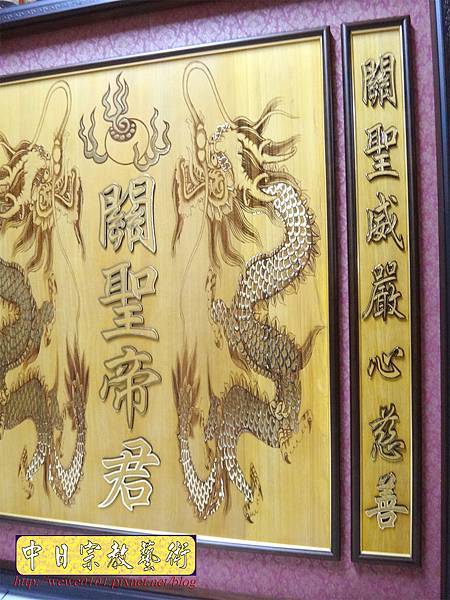 關聖威嚴心慈善
關聖帝君
中日宗教藝術
http://wewe0101.pixnet.net/blog